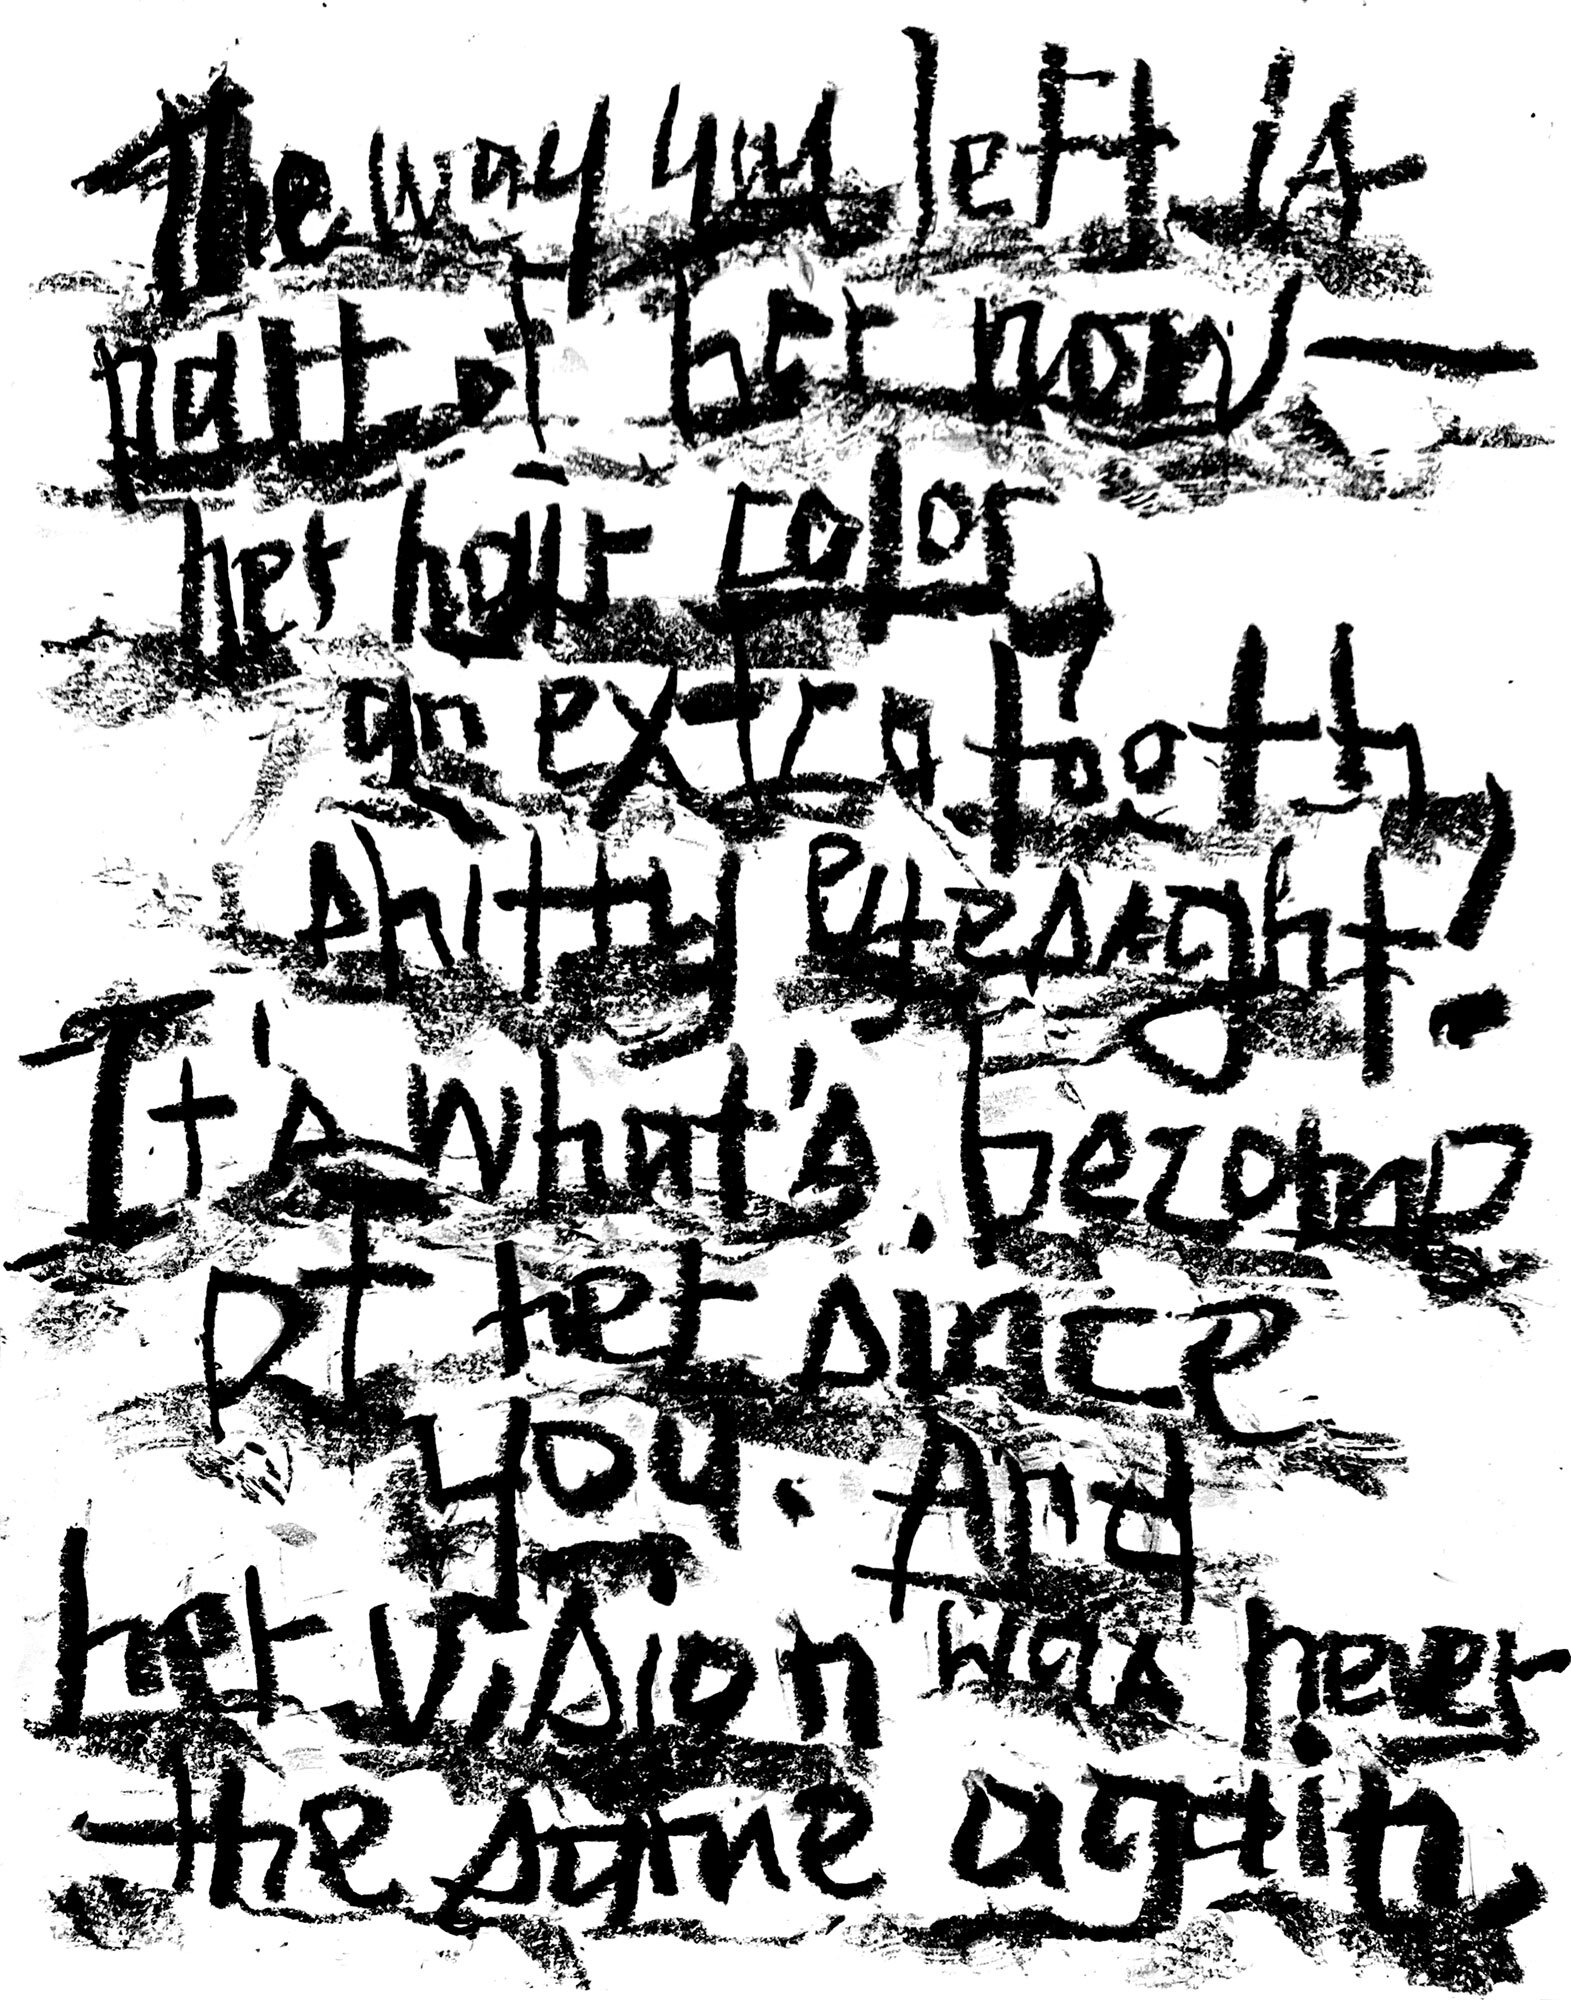 The way you left is
part of her now—
her hair color,
an extra tooth,
shitty eyesight!
It's what's become
of her since
you. And
her vision was never
the same again